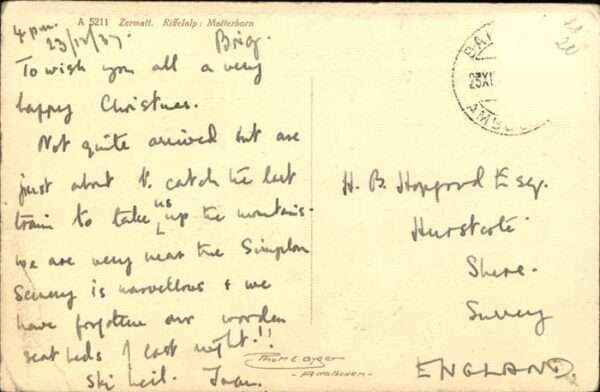 A 5211 Zermatt. Riffelalp: Matterhorn
4 p.m.
23/12/37. Brig.
To wish you all a very
happy Christmas.
Not quite arrived but are
just about to catch the last
train to take us up the mountains.
We are very near the Simplon
Scenery is marvellous & we
have forgotten our wooden
seat beds of last night!!
Ski heil. Joan.
H. B. Hopgood Esq.
Hurstcote
Shere.
Surrey
ENGLAND.
23XI
AMBU